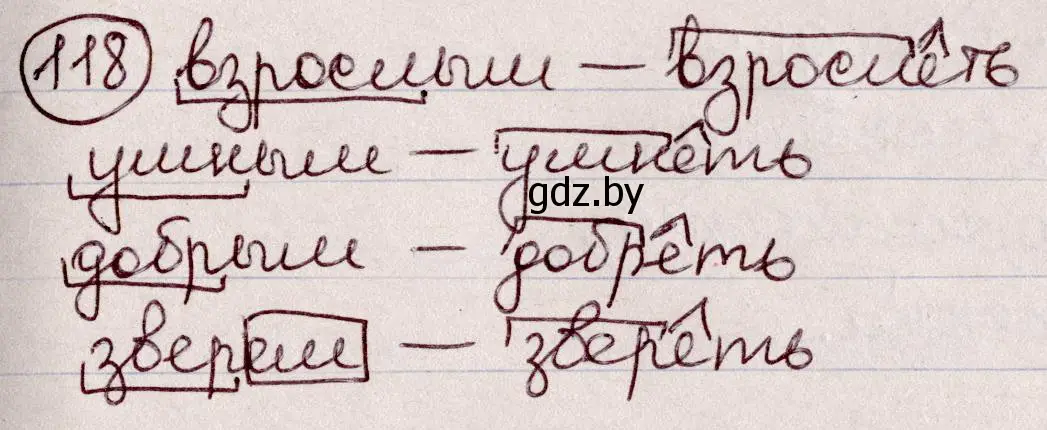 118 взрослым — взрослеть
умным — умнеть
gdz.by
добрым — добреть
зверем — звереть